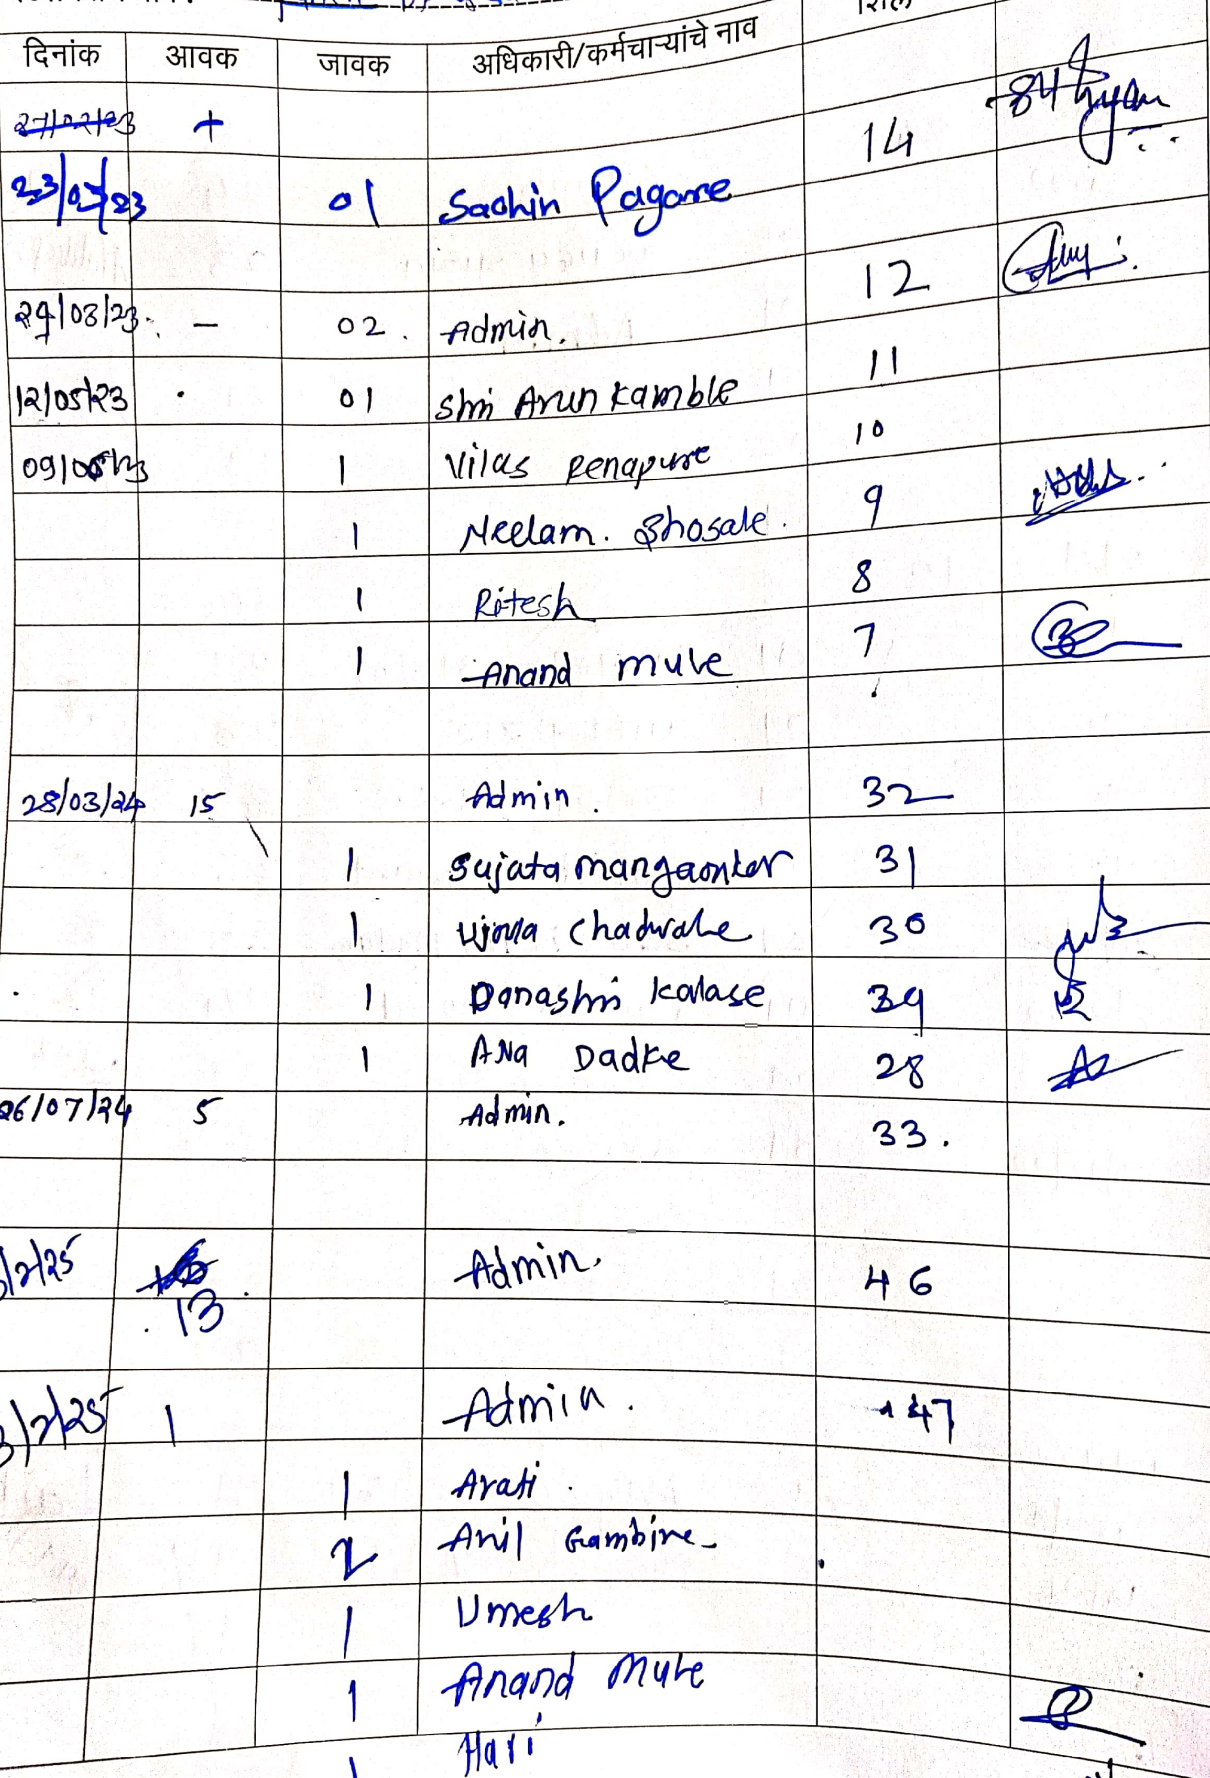 दिनांक आवक जावक अधिकारी/कर्मचाऱ्यांचे नाव
27/02/23 +
14
23/02/23 01 Sachin Pagare
12
29/03/23 - 02. Admin.
11
12/05/23 . 01 Shri Arun Kamble
10
09/08/23 1 Vilas Renapure
9
1 Neelam. Bhosale.
8
1 Ritesh
7
1 Anand mule
28/03/24 15 Admin. 32
1 Sujata mangaonkar 31
1 30
1 Kalase 29
1 Dadke 28
26/07/24 5 Admin. 33.
/2/25 13 Admin. 46
3/2/25 1 Admin. 47
1 Arati.
2 Anil Gambire
1 Umesh
1 Anand Mule
1 Hari